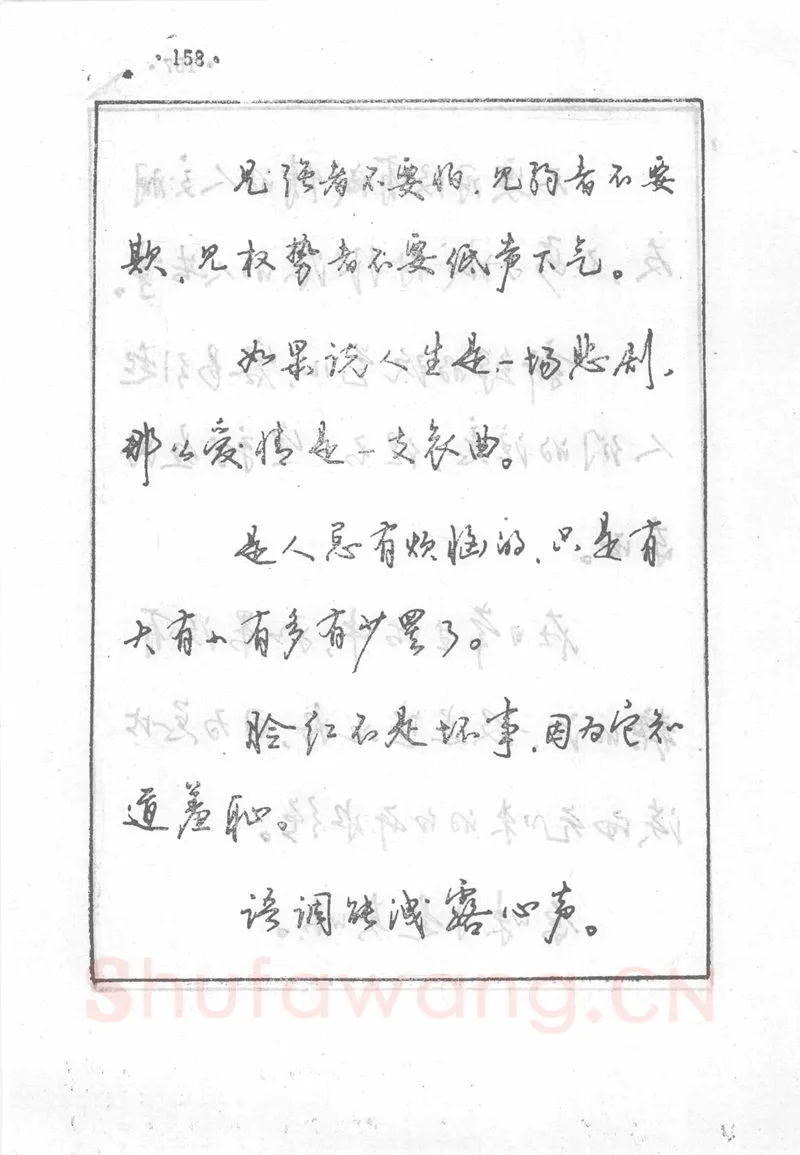 ·158·
见强者不要怕，见弱者不要
欺，见权势者不要低声下气。
如果说人生是一场悲剧，
那么爱情是一支哀曲。
是人总有烦恼的，只是有
大有小有多有少罢了。
脸红不是坏事，因为它知
道羞耻。
语调能泄露心声。
Shufawang.CN